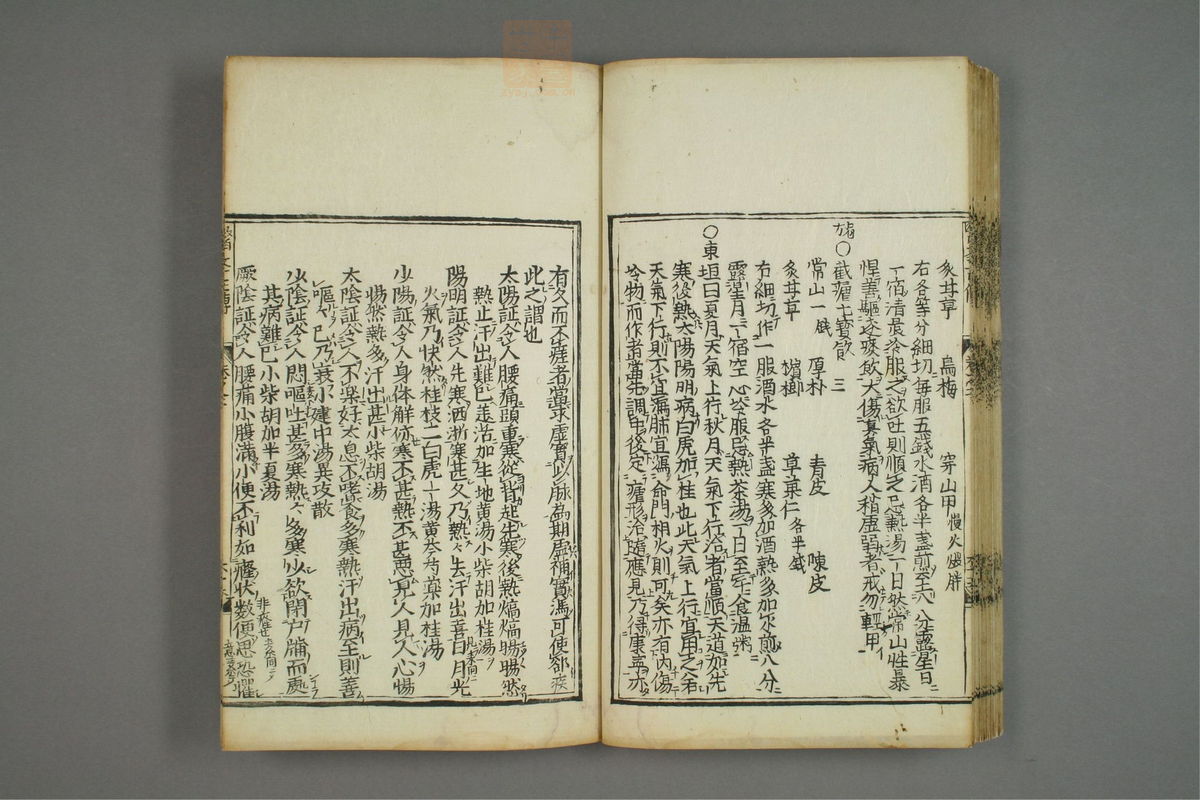 炙甘草　烏梅　穿山甲慢火煨胖
右各等分細切毎服五錢水酒各半盞煎至八分露星月
一宿清晨冷服之欲吐則順之忌熱湯一日然常山性暴
悍善驅逐痰飲大傷真氣病人稍虛弱者戒勿輕用
局○截瘧七寶飲　三
常山一錢　厚朴　青皮　陳皮
炙甘草　檳榔　草菓仁各半錢
右細切作一服酒水各半盞寒多加酒熱多加水煎八分
露星月一宿空心冷服忌熱茶湯一日至午食温粥
○東垣曰夏月天氣上行秋月天氣下行治者當順天道如先
寒後熱太陽陽明病白虎加桂也此天氣上行宜用之若
天氣下行則不宜瀉肺宜瀉命門相火則可矣亦有內傷
冷物而作者當先調中後定瘧形治隨應見乃得康寧亦
有久而不瘥者當求虛實以脉為期虛補實瀉可使却疾
此之謂也
太陽証令人腰痛頭重寒從背起先寒後熱熇熇暍暍然
熱止汗出難已羌活加生地黄湯小柴胡加桂湯
陽明証令人先寒洒淅寒甚久乃熱々去汗出喜日月光
火氣乃快然桂枝二白虎一湯黄芩芍藥加桂湯
少陽証令人身体解㑊寒不甚熱不甚惡見人見人心惕
惕然熱多汗出甚小柴胡湯
太陰証令人不樂好太息不嗜食多寒熱汗出病至則善
嘔々已乃衰小建中湯異攻散
少陰証令人悶嘔吐甚多寒熱々多寒少欲閉户牖而處
其病難已小柴胡加半夏湯
厥陰証令人腰痛小腹滿小便不利如癃狀數便思恐懼